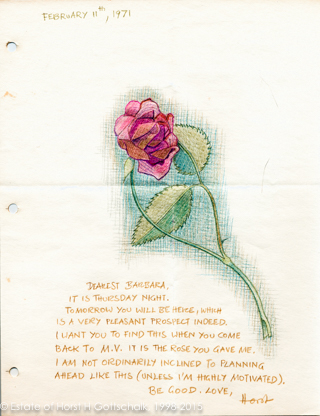 FEBRUARY 11th, 1971
DEAREST BARBARA,
IT IS THURSDAY NIGHT.
TOMORROW YOU WILL BE HERE, WHICH
IS A VERY PLEASANT PROSPECT INDEED.
I WANT YOU TO FIND THIS WHEN YOU COME
BACK TO M.V. IT IS THE ROSE YOU GAVE ME.
I AM NOT ORDINARILY INCLINED TO PLANNING
AHEAD LIKE THIS (UNLESS I'M HIGHLY MOTIVATED).
BE GOOD. LOVE,
Horst
© Estate of Horst A Gottschalk 1996-2015